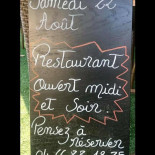 Samedi 22
Août
Restaurant
Ouvert midi
et Soir.
Pensez à
réserver